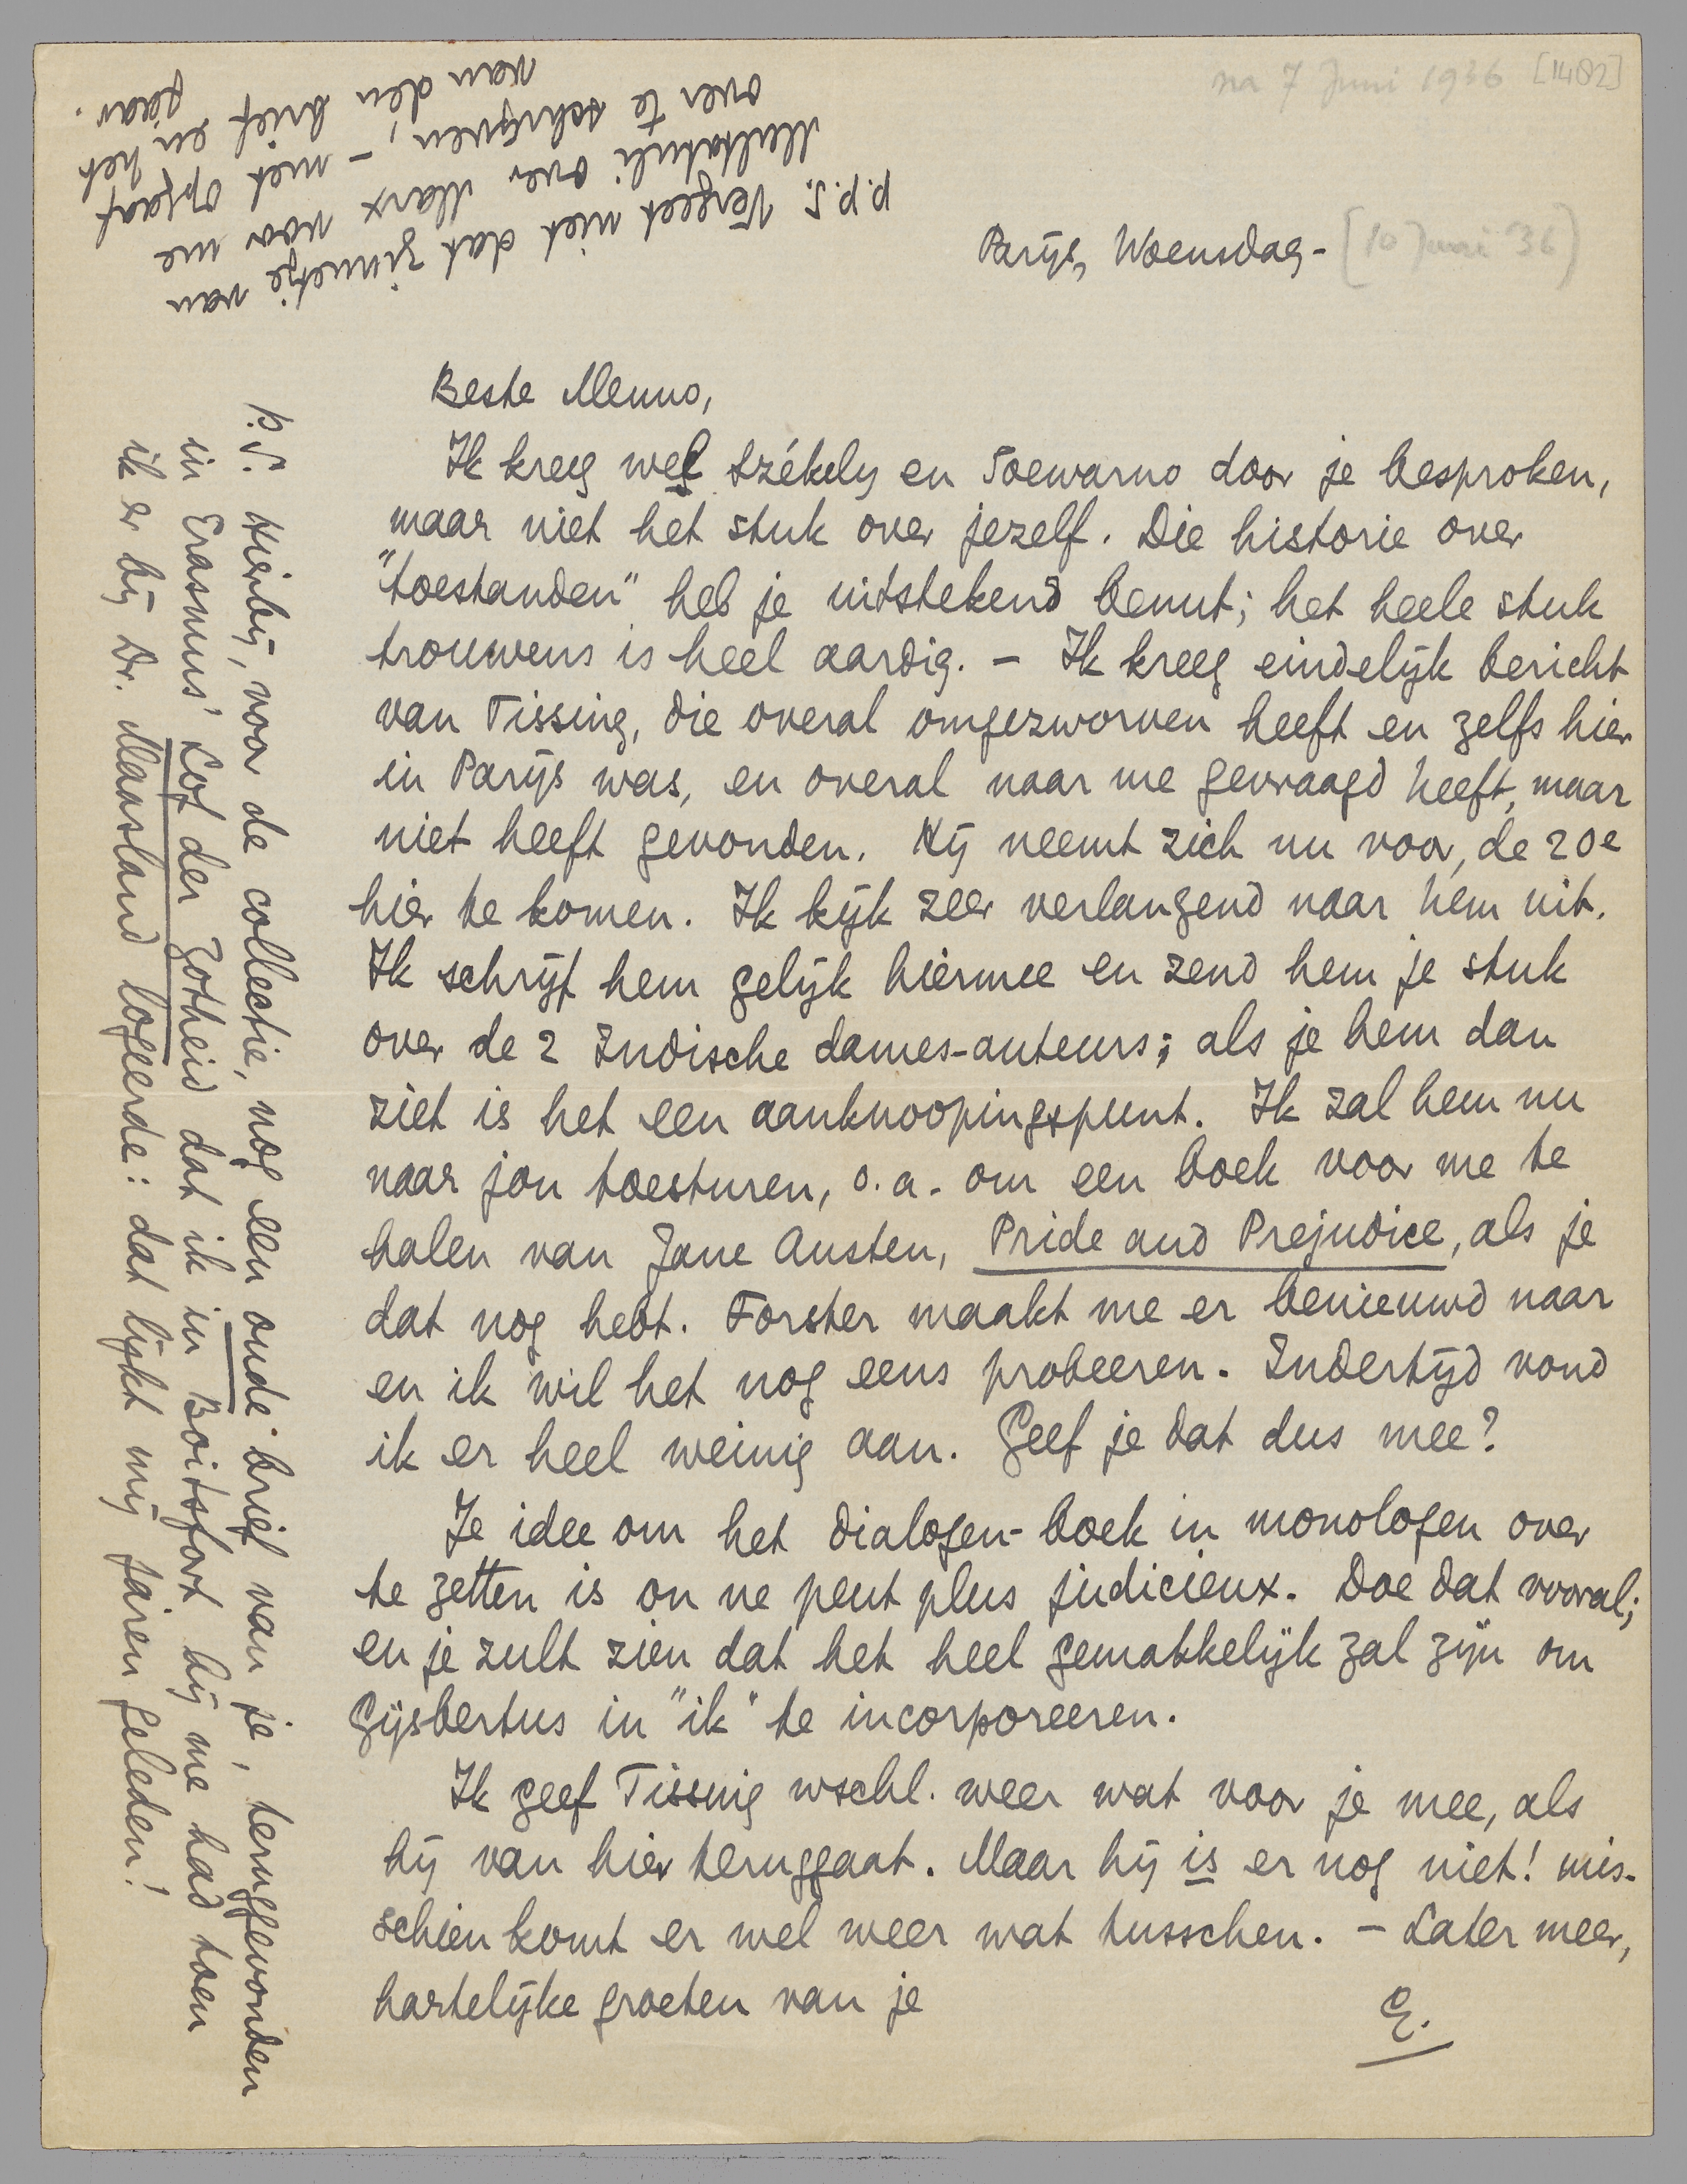 na 7 Juni 1936 [1482]
Parijs, Woensdag - [10 Juni '36]
Beste Menno,
Ik kreeg wel Székely en Soewarno door je besproken,
maar niet het stuk over jezelf. Die historie over
"toestanden" heb je uitstekend benut; het heele stuk
trouwens is heel aardig. – Ik kreeg eindelijk bericht
van Tissing, die overal omgezworven heeft en zelfs hier
in Parijs was, en overal naar me gevraagd heeft, maar
niet heeft gevonden. Hij neemt zich nu voor, de 20e
hier te komen. Ik kijk zeer verlangend naar hem uit.
Ik schrijf hem gelijk hiermee en zend hem je stuk
over de 2 Indische dames-auteurs; als je hem dan
ziet is het een aanknoopingspunt. Ik zal hem nu
naar jou toesturen, o.a. om een boek voor me te
halen van Jane Austen, Pride and Prejudice, als je
dat nog hebt. Forster maakt me er benieuwd naar
en ik wil het nog eens probeeren. Indertijd vond
ik er heel weinig aan. Geef je dat dus mee?
Je idee om het dialogen-boek in monologen over
te zetten is on ne peut plus judicieux. Doe dat vooral;
en je zult zien dat het heel gemakkelijk zal zijn om
Gijsbertus in "ik" te incorporeeren.
Ik geef Tissing wschl. weer wat voor je mee, als
hij van hier teruggaat. Maar hij is er nog niet! mis-
schien komt er wel weer wat tusschen. – Later meer,
hartelijke groeten van je
E.
P.S. Hierbij, voor de collectie, nog een oude brief van je, teruggevonden
in Erasmus' Lof der Zotheid dat ik in Boitsfort bij me had toen
ik er bij Dr. Maasland logeerde: dat lijkt mij jaren geleden!
p.p.S. Vergeet niet dat zinnetje van
Multatuli over Marx voor me
over te schrijven, – met opgaaf
van den brief en het
jaar.